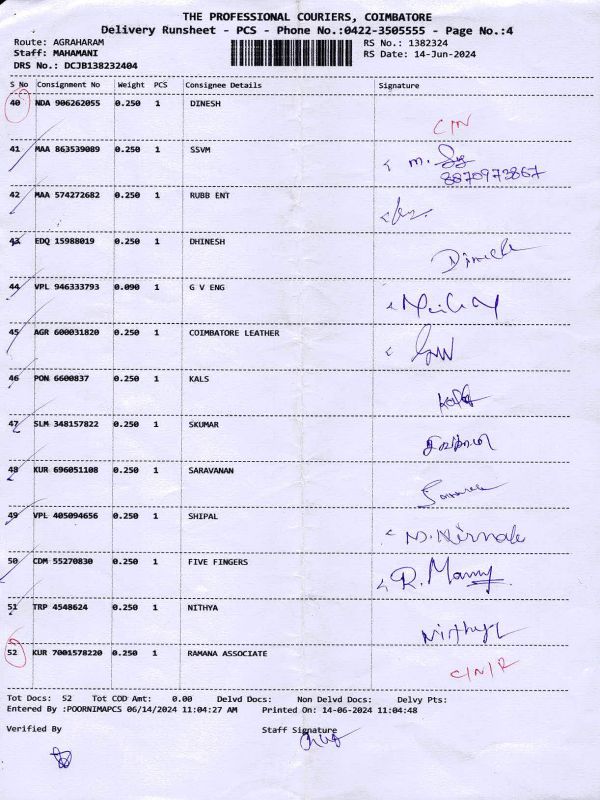 THE PROFESSIONAL COURIERS, COIMBATORE
Delivery Runsheet - PCS - Phone No.:0422-3505555 - Page No.:4
Route: AGRAHARAM RS No.: 1382324
Staff: MAHAMANI RS Date: 14-Jun-2024
DRS No.: DCJB138232404
S No Consignment No Weight PCS Consignee Details Signature
40 NDA 906262055 0.250 1 DINESH
41 MAA 863539089 0.250 1 SSVM m.
8870973867
42 MAA 574272682 0.250 1 RUBB ENT
43 EDQ 15988019 0.250 1 DHINESH Dinesh
44 VPL 946333793 0.090 1 G V ENG
45 AGR 600031820 0.250 1 COIMBATORE LEATHER
46 PON 6600837 0.250 1 KALS
47 SLM 348157822 0.250 1 SKUMAR
48 KUR 696051108 0.250 1 SARAVANAN
49 VPL 405094656 0.250 1 SHIPAL
50 CDM 55270830 0.250 1 FIVE FINGERS R.
51 TRP 4548624 0.250 1 NITHYA
52 KUR 7001578220 0.250 1 RAMANA ASSOCIATE C/N/R
Tot Docs: 52 Tot COD Amt: 0.00 Delvd Docs: Non Delvd Docs: Delvy Pts:
Entered By :POORNIMAPCS 06/14/2024 11:04:27 AM Printed On: 14-06-2024 11:04:48
Verified By Staff Signature